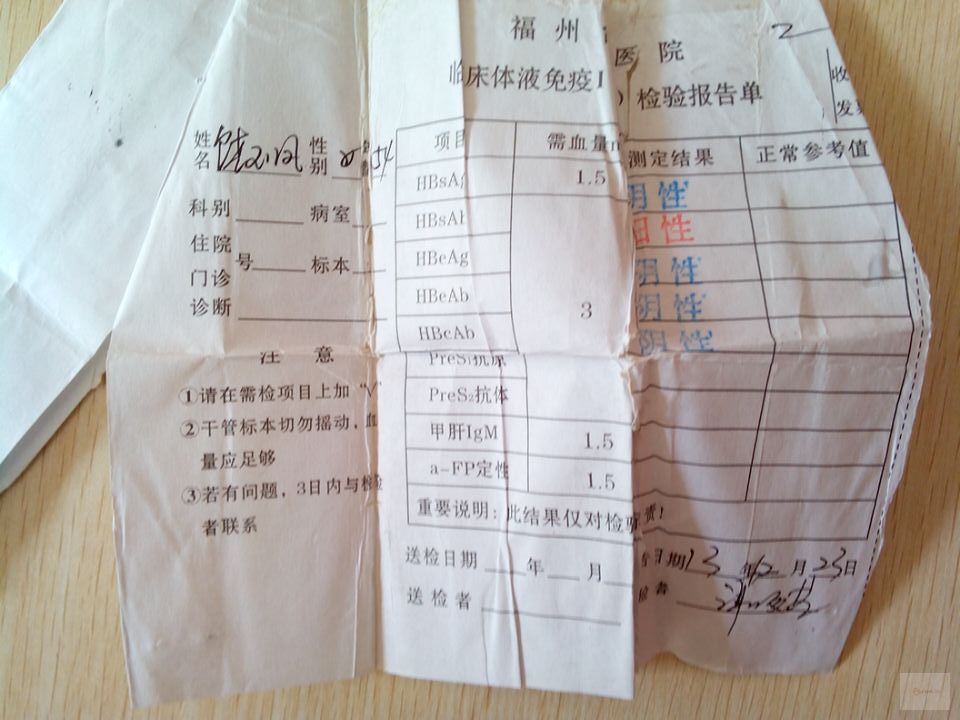 福州 医院
2
临床体液免疫 检验报告单
收
发
姓名 性别 女 54
科别 病室
住院
门诊 号 标本
诊断
注意
①请在需检项目上加"√"
②干管标本切勿摇动，血
量应足够
③若有问题，3日内与检
者联系
项目 需血量 测定结果 正常参考值
HBsAg 1.5 阴性
HBsAb 阳性
HBeAg 阴性
HBeAb 3 阴性
HBcAb 阴性
PreS₁抗原
PreS₂抗体
甲肝IgM 1.5
a-FP定性 1.5
重要说明：此结果仅对检 责!
送检日期 年 月 告日期 13年12月23日
送检者 检者